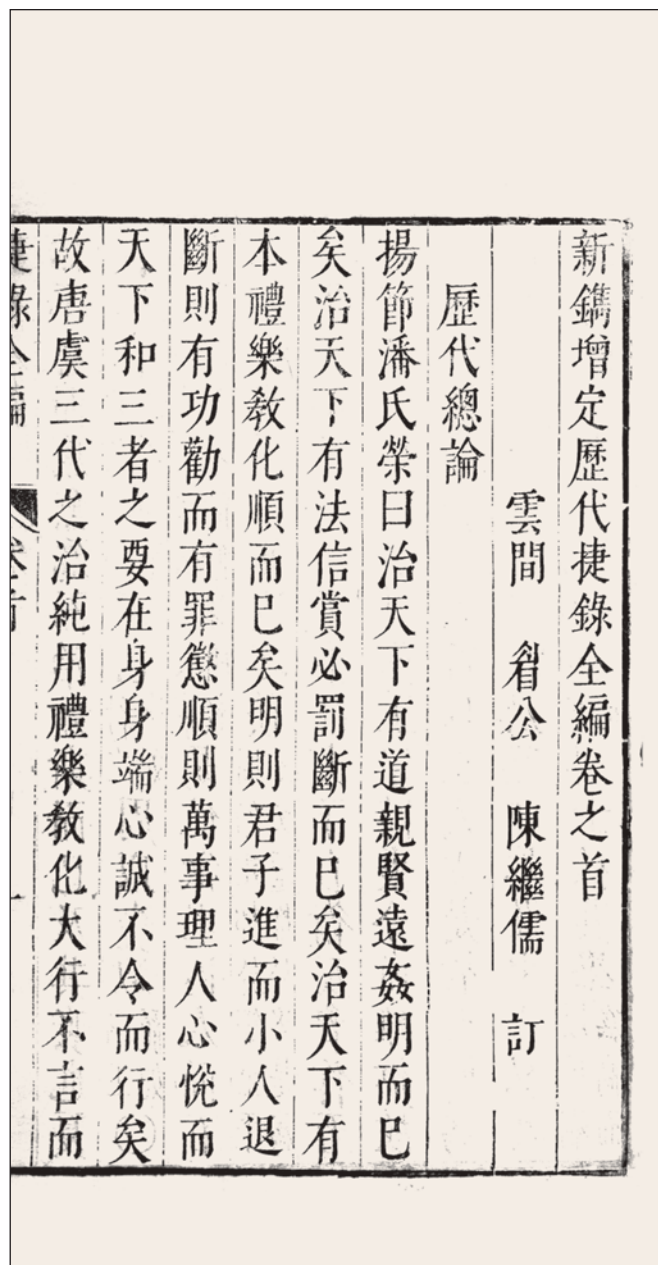 新鐫增定歷代捷錄全編卷之首
雲間 眉公 陳繼儒 訂
歷代總論
揚節潘氏榮曰治天下有道親賢遠姦明而巳
矣治天下有法信賞必罰斷而巳矣治天下有
本禮樂教化順而巳矣明則君子進而小人退
斷則有功勸而有罪懲順則萬事理人心悅而
天下和三者之要在身身端心誠不令而行矣
故唐虞三代之治純用禮樂教化大行不言而
捷錄全編 卷之首 一